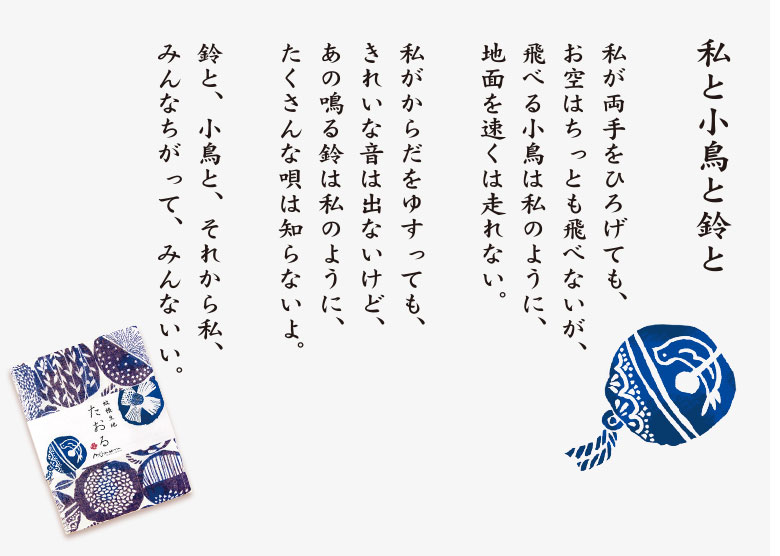 私と小鳥と鈴と
私が両手をひろげても、
お空はちっとも飛べないが、
飛べる小鳥は私のように、
地面を速くは走れない。
私がからだをゆすっても、
きれいな音は出ないけど、
あの鳴る鈴は私のように、
たくさんな唄は知らないよ。
鈴と、小鳥と、それから私、
みんなちがって、みんないい。
蚊帳生地
たおる